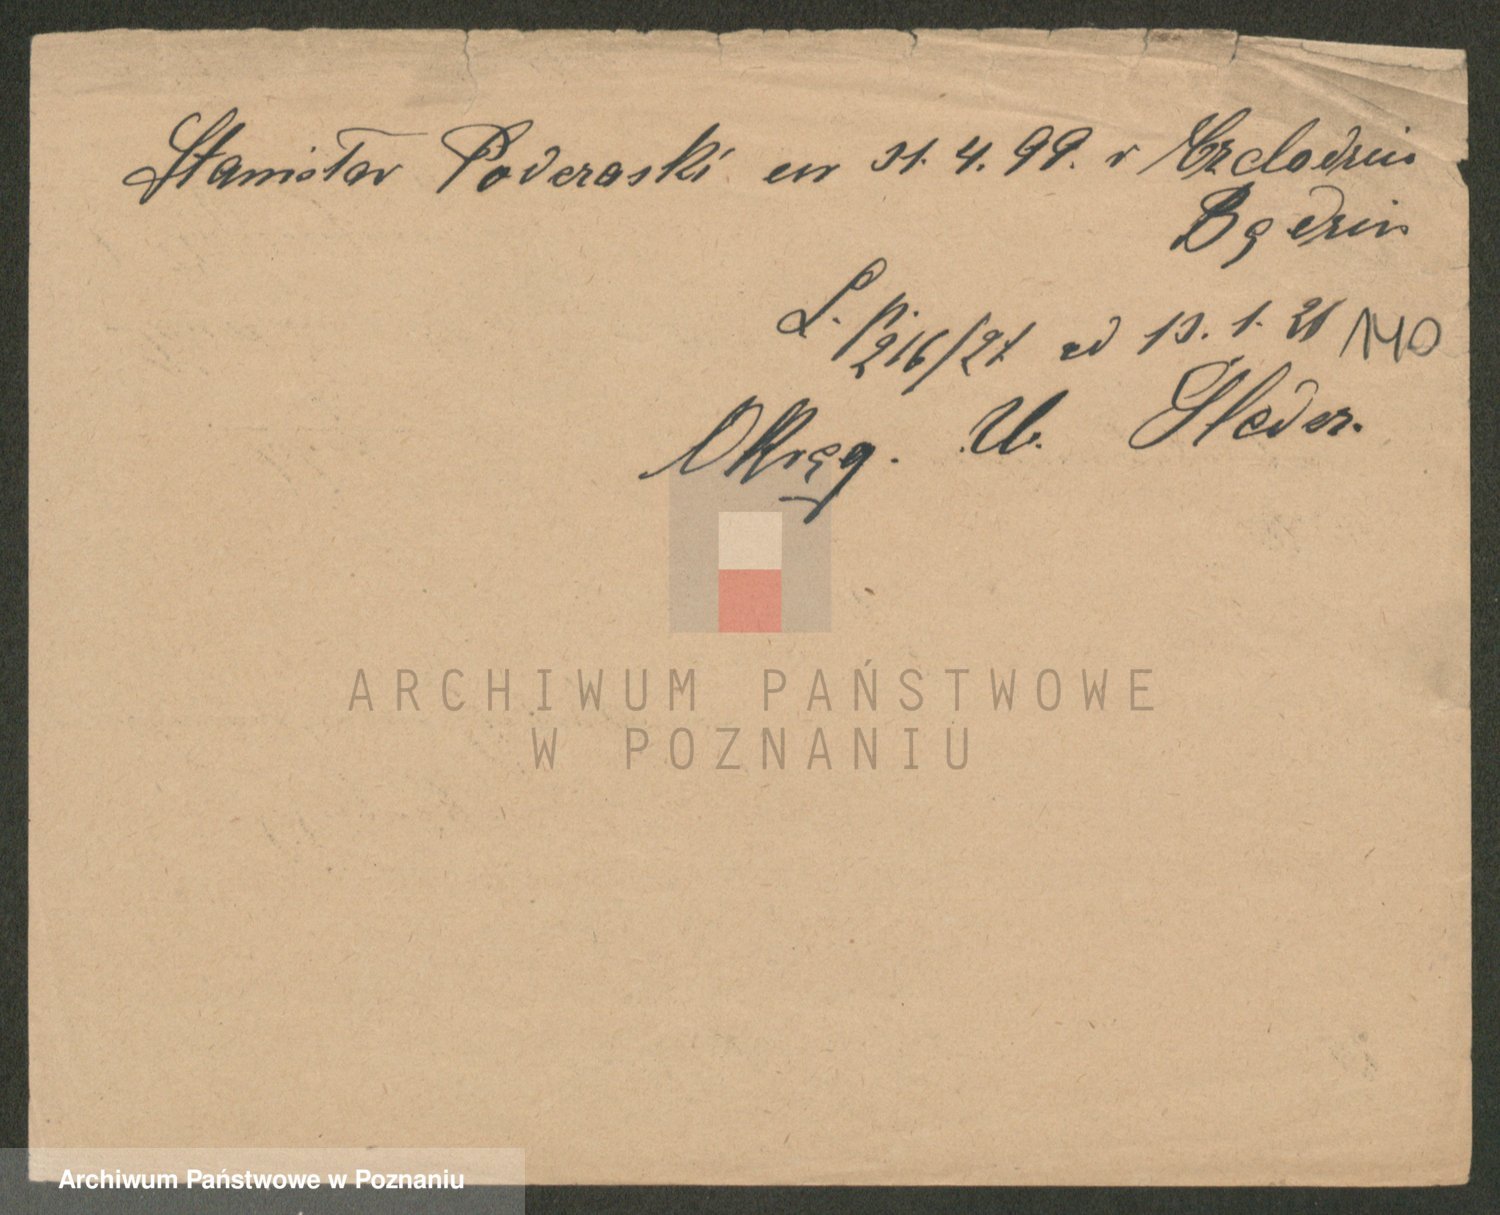 Stanisław Poderaski ur 31. 4. 99. v
Będzin
L. p. 216/21 od 13. 1. 21 140
Okręg. U. Śledcz.
ARCHIWUM PAŃSTWOWE
W POZNANIU
Archiwum Państwowe w Poznaniu